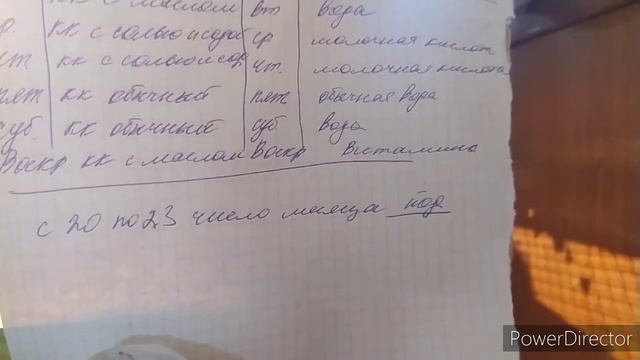 кк с маслом вт вода
р. кк с солью и содой ср молочная кислот
чт кк с солью и сод чт. молочная кислота
пят кк обычный пят обычная вода
суб. кк обычный суб вода
Воскр кк с маслом Воскр Витамины
с 20 по 23 число месяца йод
PowerDirector